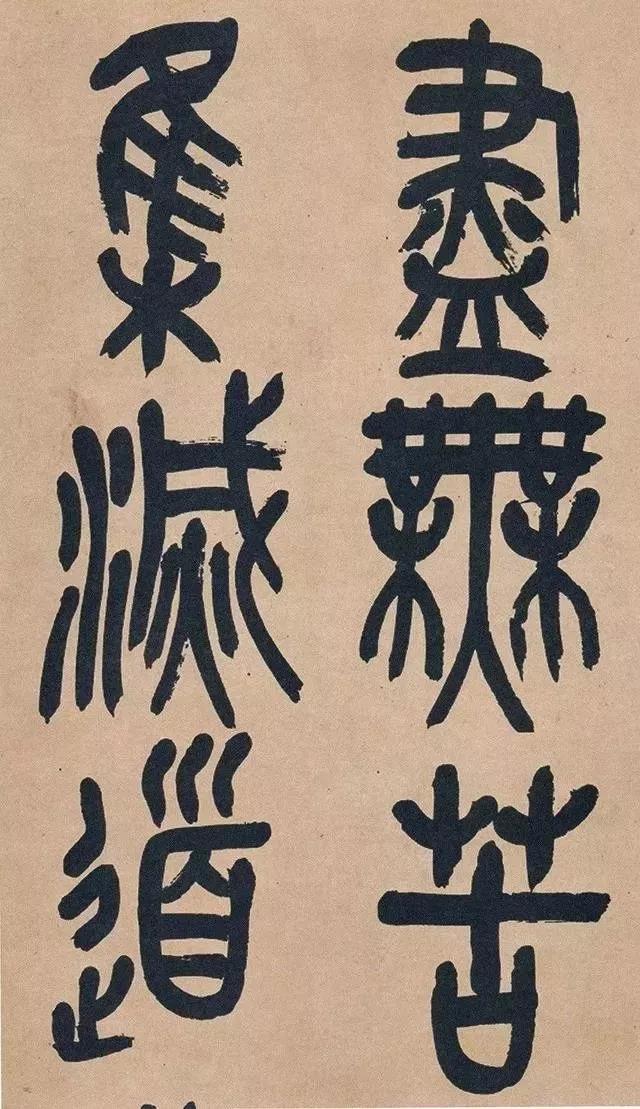 盡無苦
集滅道